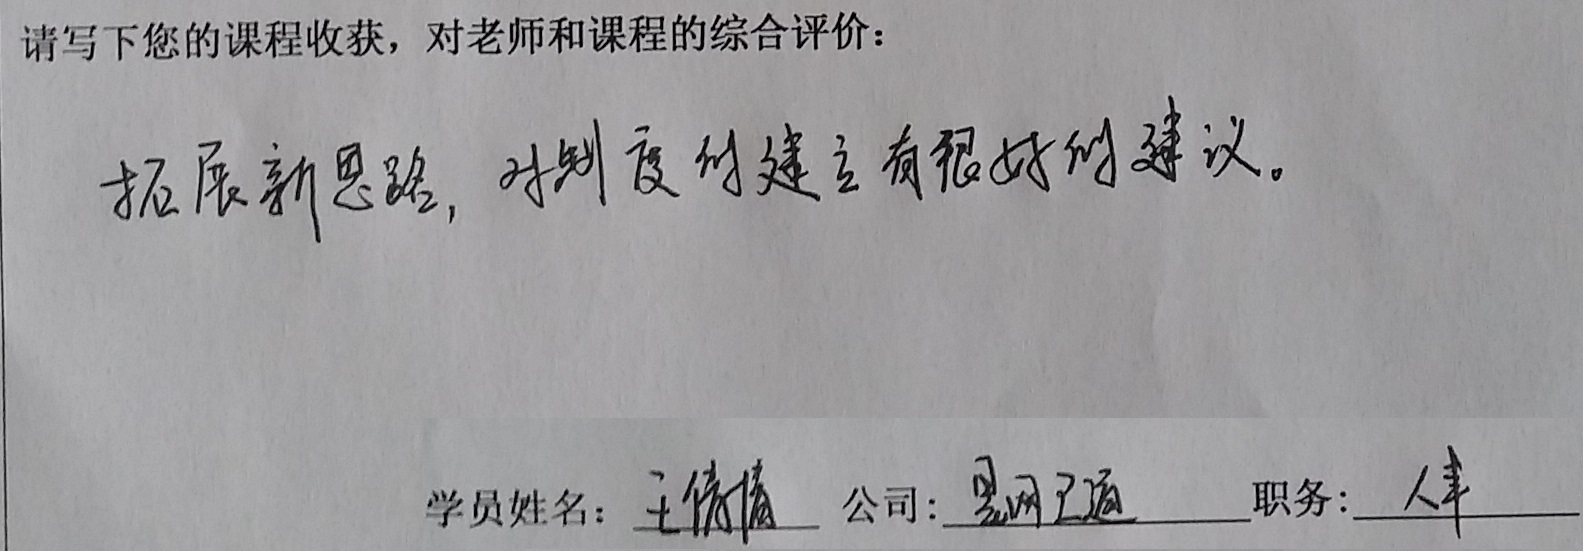 请写下您的课程收获，对老师和课程的综合评价：
拓展新思路，对制度的建立有很好的建议。
学员姓名：王倩倩 公司：星网卫通 职务：人事